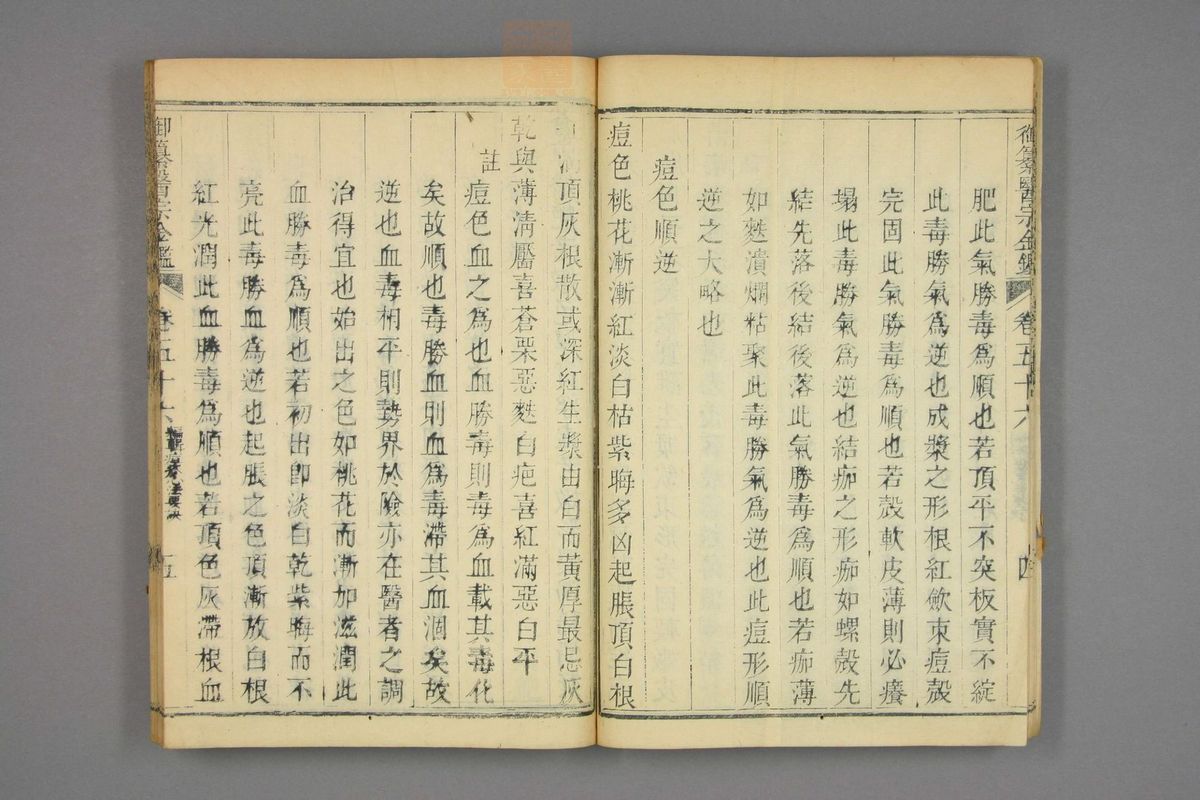 御纂醫宗金鑑 卷五十六 四
肥此氣勝毒爲順也若頂平不突板實不綻
此毒勝氣爲逆也成漿之形根紅歛束痘殼
完固此氣勝毒爲順也若殼軟皮薄則必癢
塌此毒勝氣爲逆也結痂之形痂如螺殼先
結先落後結後落此氣勝毒爲順也若痂薄
如麩潰爛粘聚此毒勝氣爲逆也此痘形順
逆之大略也
痘色順逆
痘色桃花漸漸紅淡白枯紫晦多凶起脹頂白根
紅潤頂灰根散或深紅生漿由白而黃厚最忌灰
乾與薄清靨喜蒼栗惡麩白疤喜紅滿惡白平
註
痘色血之爲也血勝毒則毒爲血載其毒化
矣故順也毒勝血則血爲毒滯其血涸矣故
逆也血毒相平則勢界於險亦在醫者之調
治得宜也始出之色如桃花而漸加滋潤此
血勝毒爲順也若初出卽淡白乾紫晦而不
亮此毒勝血爲逆也起脹之色頂漸放白根
紅光潤此血勝毒爲順也若頂色灰滯根血
御纂醫宗金鑑 卷五十六 五